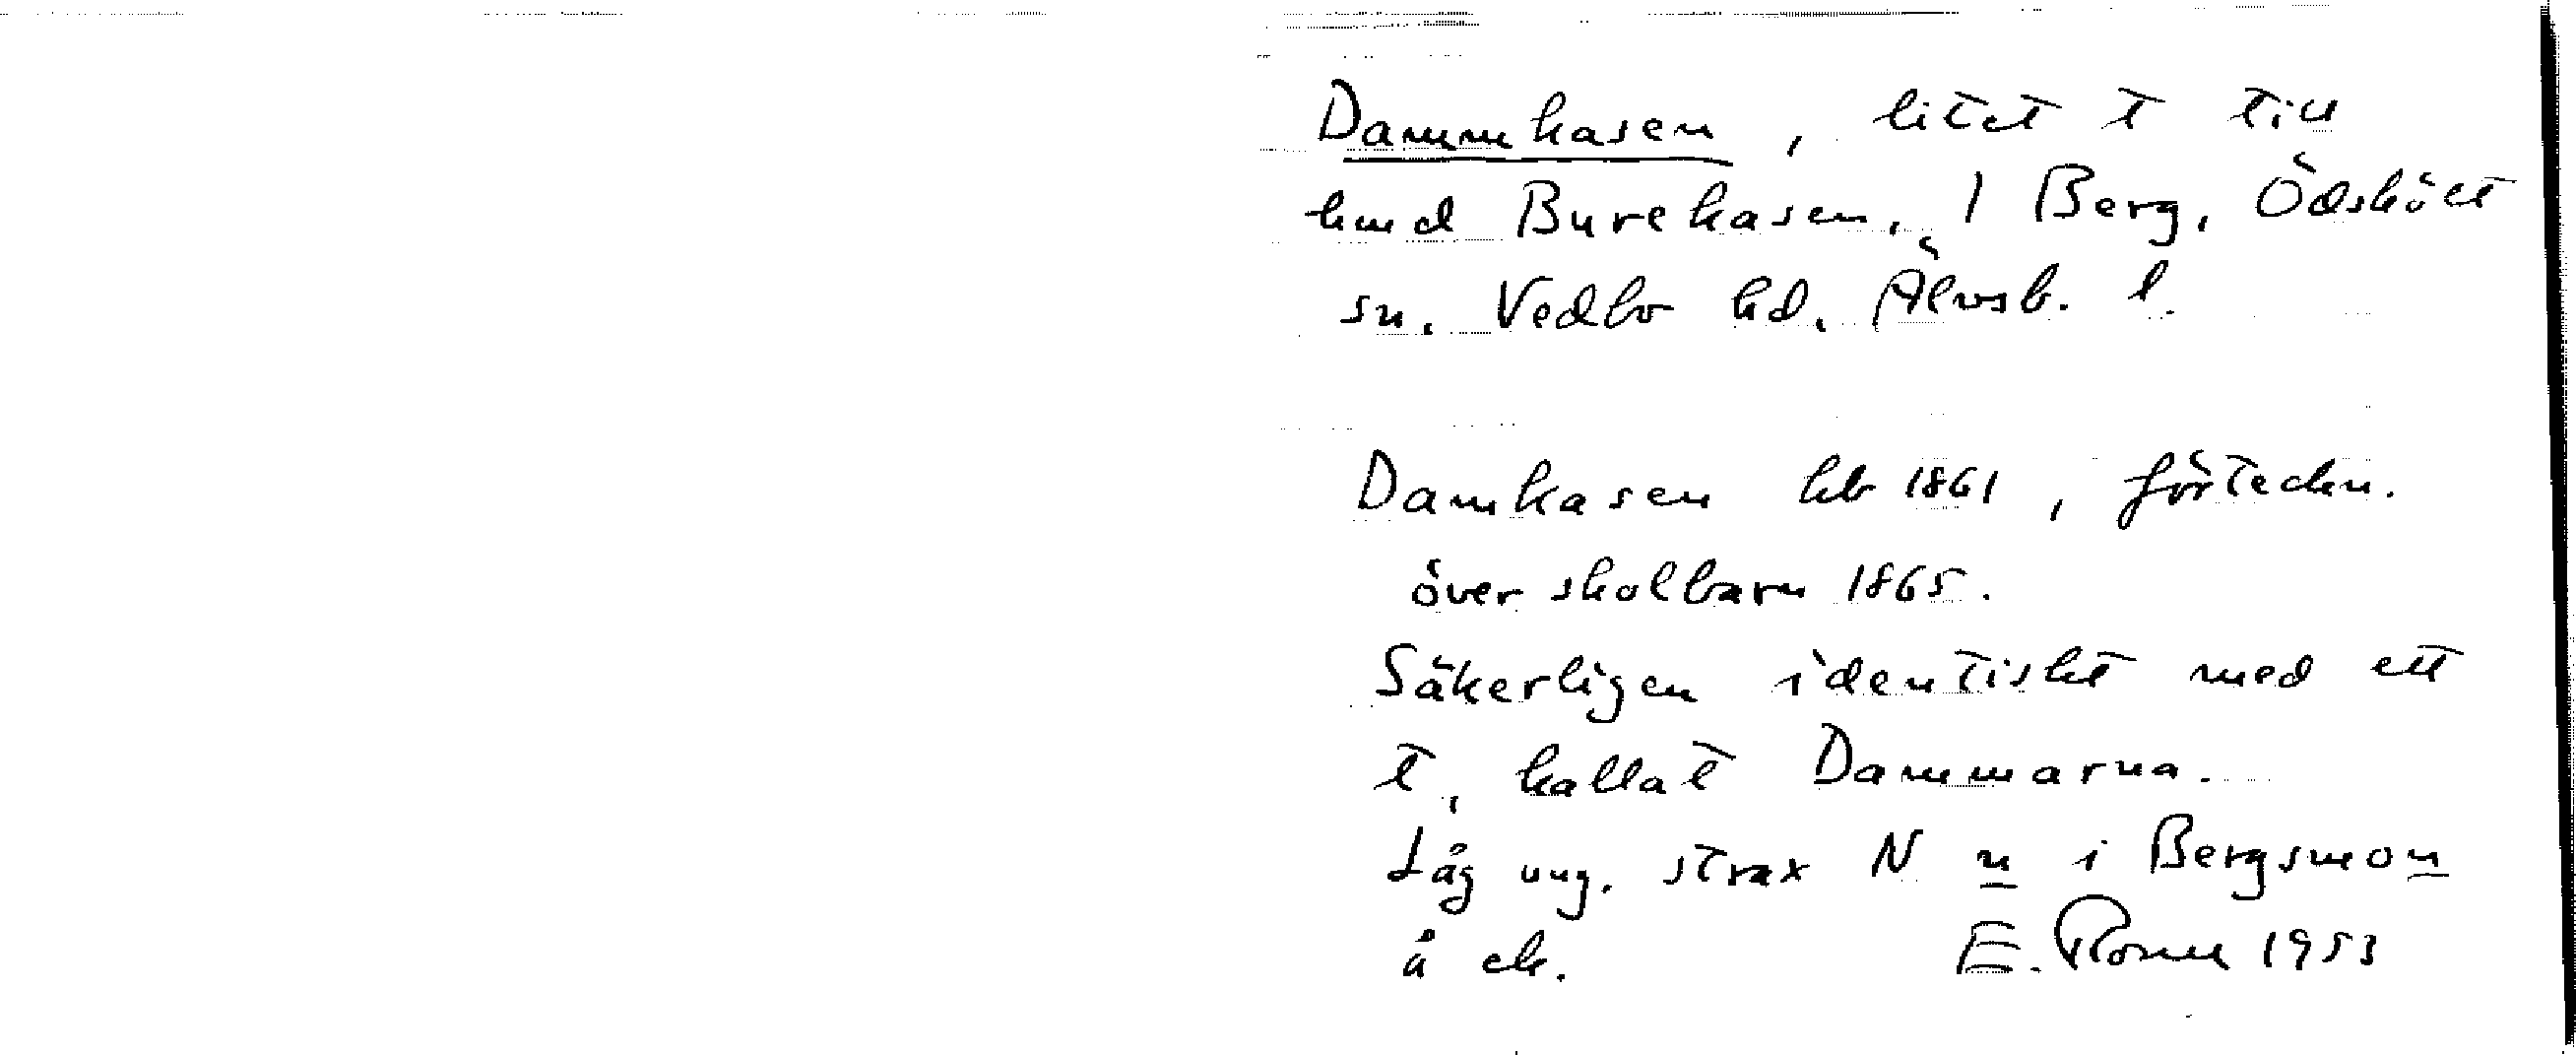 Dammkasen, litet t till
hmd Burekasen, 1 Berg, Ödskölt
sn. Vedbo hd. Älvsb. l.
Damkasen hb 1861, förteckn.
över skolbarn 1865.
Säkerligen identiskt med ett
t, kallat Dammarna.
Låg ung. strax N n i Bergsmon
å ek. E. 1953